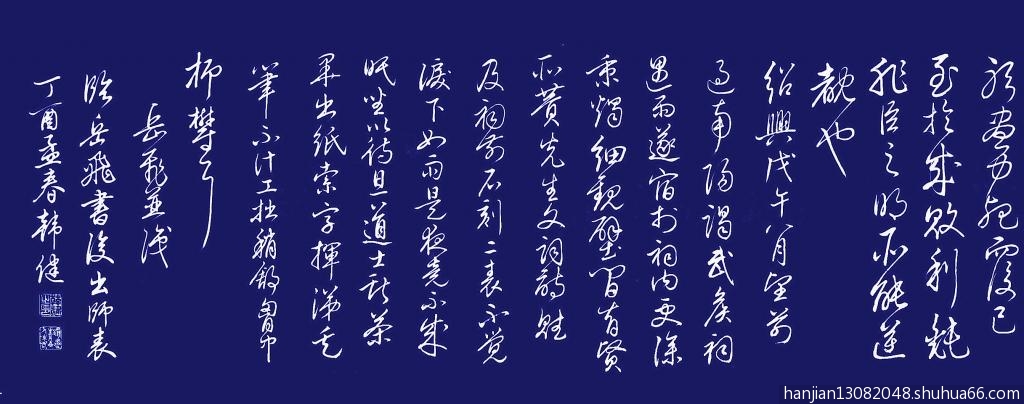 躬盡力死而後已
至於成敗利鈍
非臣之明所能逆
覩也
紹興戊午八月望前
過南陽謁武侯祠
遇雨遂宿於祠内更深
秉燭細觀壁間昔賢
所贊先生文詞詩賦
及祠前石刻二表不覺
淚下如雨是夜竟不成
眠坐以待旦道士獻茶
畢出紙索字揮涕走
筆不計工拙稍舒胸中
抑鬱耳
岳飛並識
臨岳飛書後出師表
丁酉孟春韩健
hanjian13082048.shuhua66.com